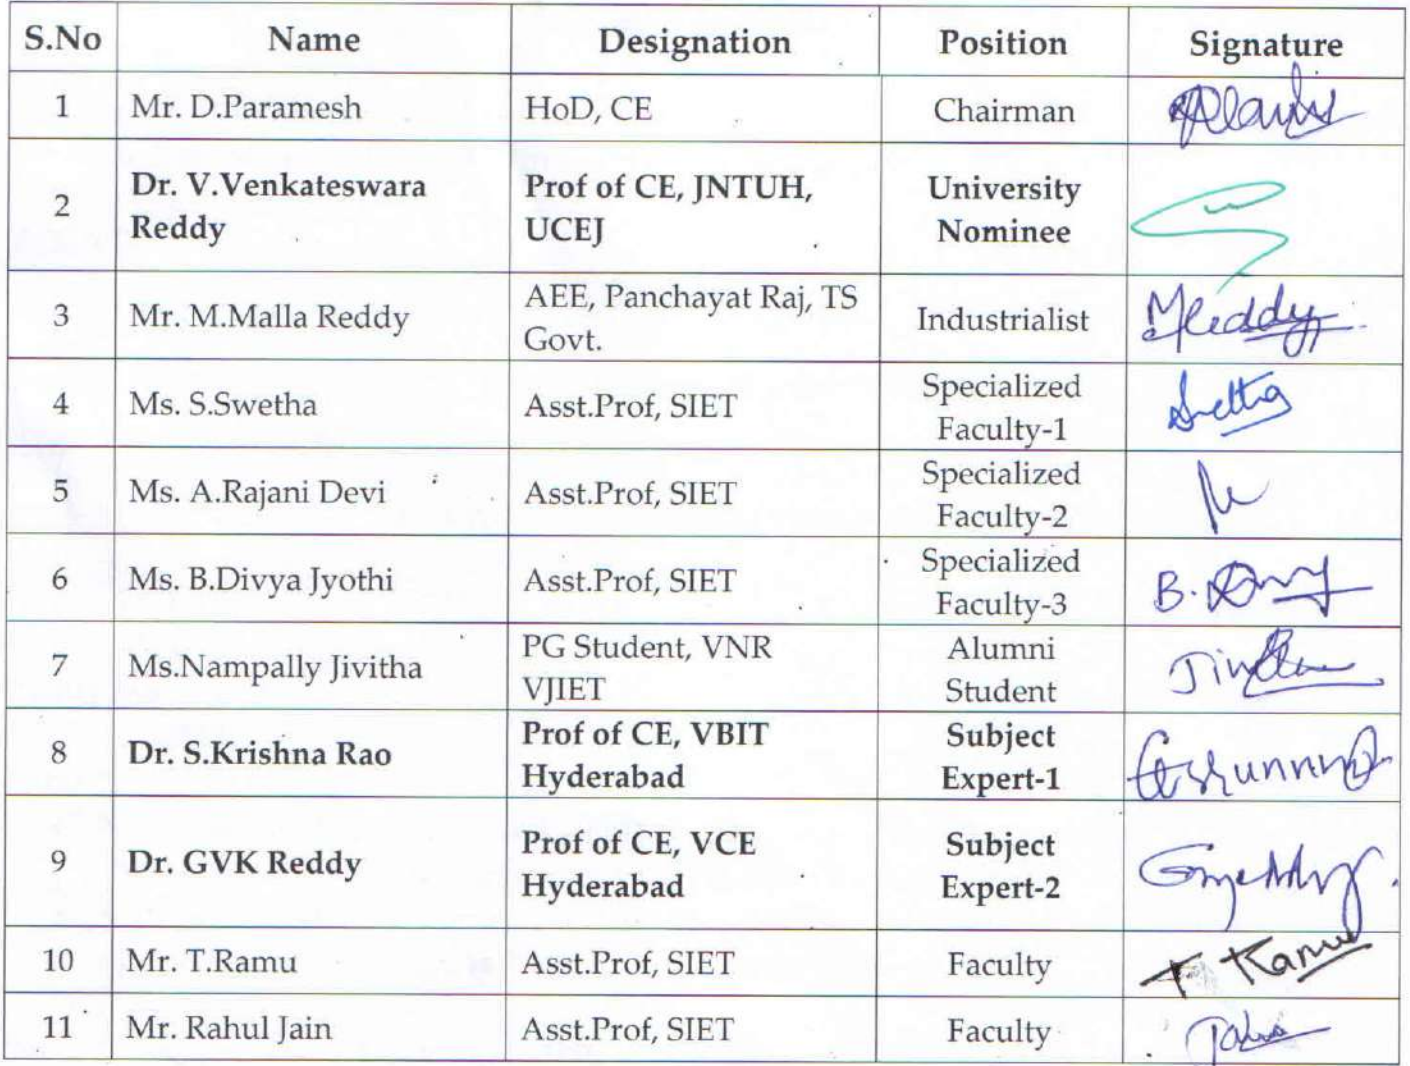 S.No Name Designation Position Signature
1 Mr. D.Paramesh HoD, CE Chairman
2 Dr. V.Venkateswara Reddy Prof of CE, JNTUH, UCEJ University Nominee
3 Mr. M.Malla Reddy AEE, Panchayat Raj, TS Govt. Industrialist MReddy
4 Ms. S.Swetha Asst.Prof, SIET Specialized Faculty-1
5 Ms. A.Rajani Devi Asst.Prof, SIET Specialized Faculty-2
6 Ms. B.Divya Jyothi Asst.Prof, SIET Specialized Faculty-3 B.
7 Ms.Nampally Jivitha PG Student, VNR VJIET Alumni Student
8 Dr. S.Krishna Rao Prof of CE, VBIT Hyderabad Subject Expert-1
9 Dr. GVK Reddy Prof of CE, VCE Hyderabad Subject Expert-2
10 Mr. T.Ramu Asst.Prof, SIET Faculty T Ramu
11 Mr. Rahul Jain Asst.Prof, SIET Faculty